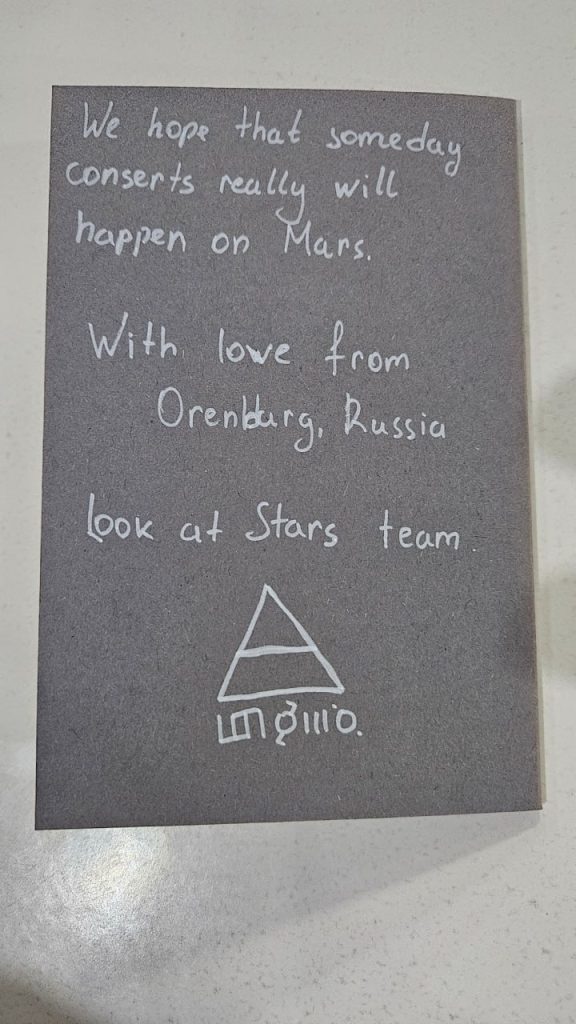 We hope that someday
conserts really will
happen on Mars.
With love from
Orenburg, Russia
Look at Stars team